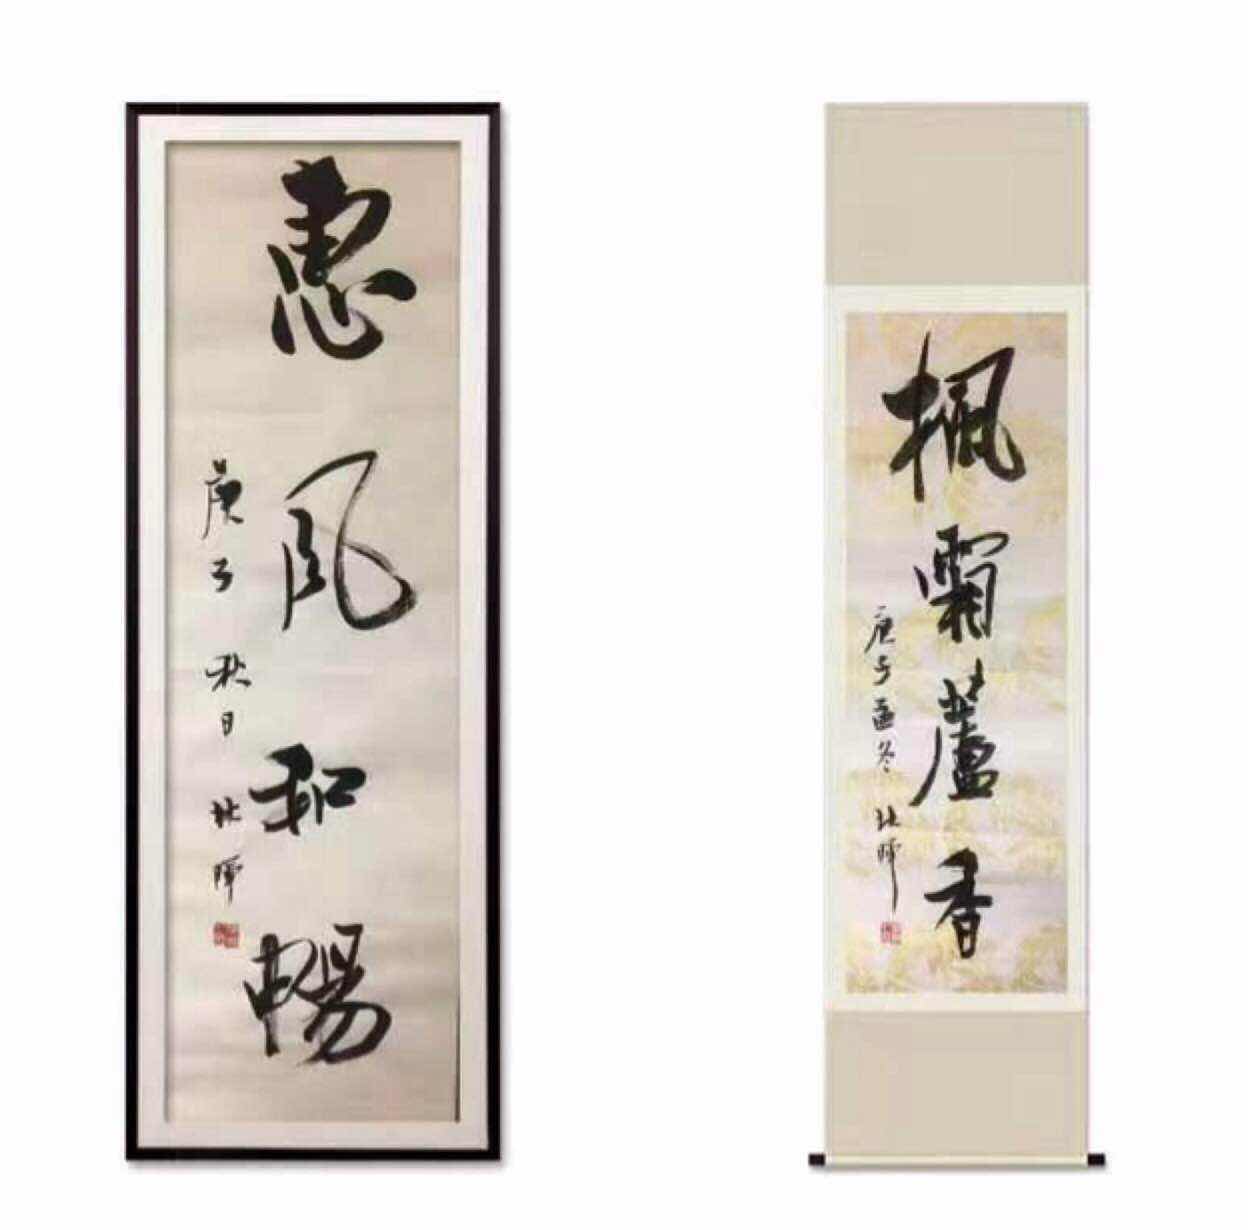 惠風和暢
庚子 秋日
楓霜蘆香
庚子孟冬